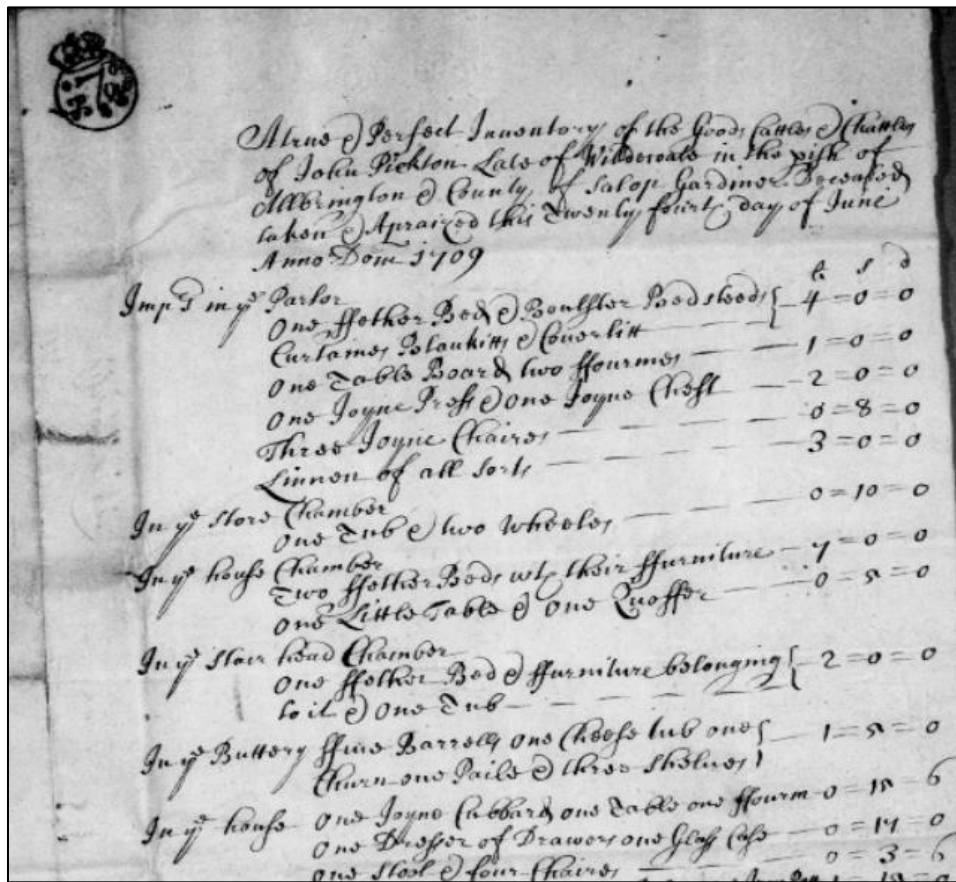 A true & Perfect Inventory of the Goods Cattles & Chattles
of John Pickton Late of in the pish of
Albrington & County of Salop Gardiner Deceased
taken & Apraized this Twenty fourth day of June
Anno Dom 1709
li s d
Imp's in ye Parlor
One ffether Bed & Boulster Bedsteeds 4=0=0
Curtaines Blankitts & Coverlitt
One Table Board two ffourmes 1=0=0
One Joyne Press & one Joyne Chest 2=0=0
Three Joyne Chaires 0=8=0
Linnen of all sorts 3=0=0
In ye store Chamber
One Tub & two Wheeles 0=10=0
In ye house Chamber
Two ffether Beds wth their ffurniture 7=0=0
One Little Table & One 0=5=0
In ye stair head Chamber
One ffether Bed & ffurniture belonging 2=0=0
to it & One Tub
In ye Buttery ffive Barrells one Cheese tub one 1=5=0
Churn one Paile & three Shelves
In ye house One Joyne Cubbard one Table one ffourm 0=15=6
One Dresser of Drawers one Glass Case 0=14=0
One Stool & four Chaires 0=3=6